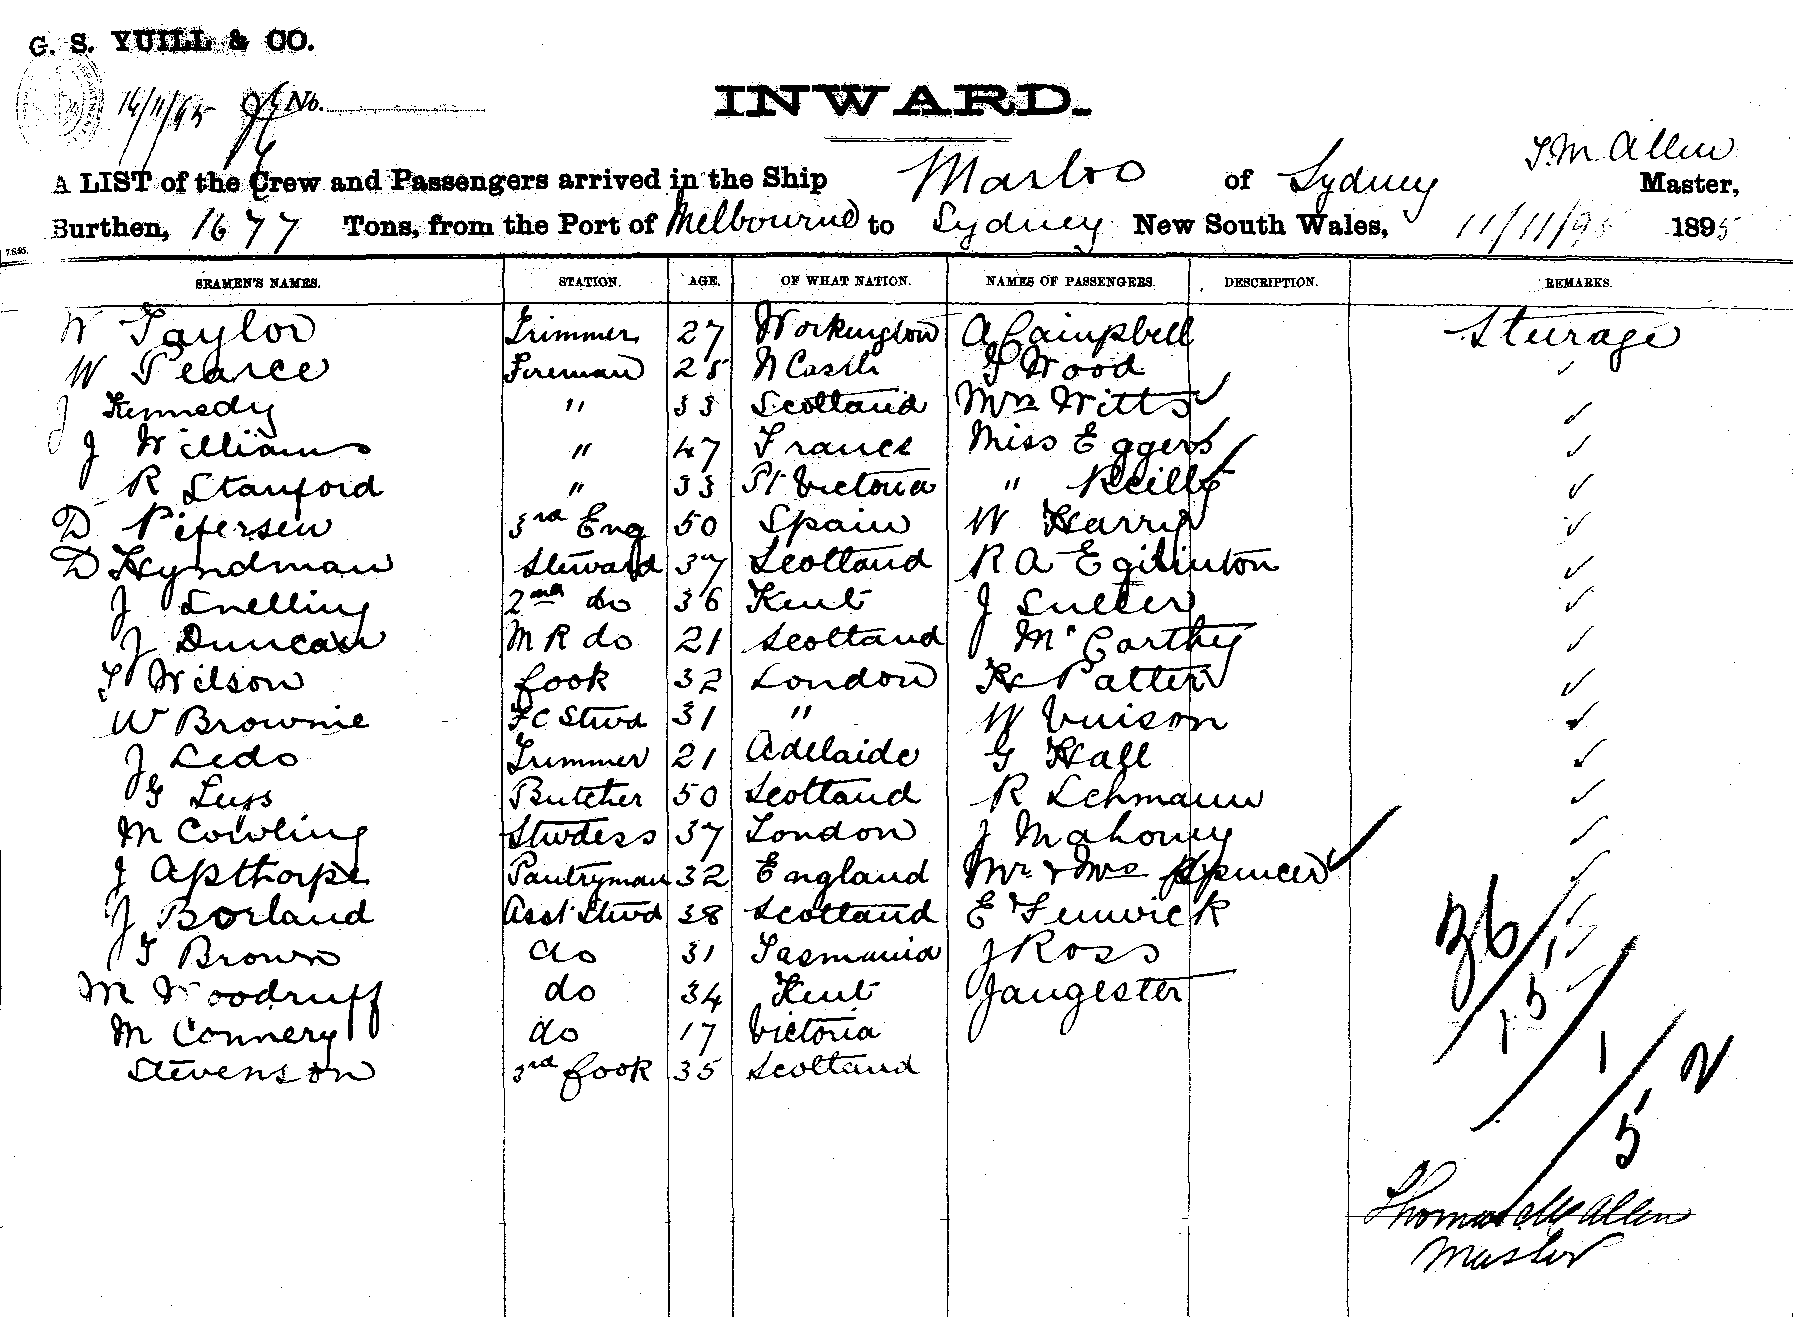 G. S. YUILL & CO.
14/11/95 No.
INWARD.
T. M. Allen
A LIST of the Crew and Passengers arrived in the Ship Marloo of Sydney Master,
Burthen, 1677 Tons, from the Port of Melbourne to Sydney New South Wales, 11/11/95 1895
SEAMEN'S NAMES. STATION. AGE. OF WHAT NATION. NAMES OF PASSENGERS. DESCRIPTION. REMARKS.
W Taylor Trimmer 27 Workington A Campbell Sturage
W Pearce Fireman 25 N Castle Wood
J Kennedy " 33 Scotland Mrs Witts
J Williams " 47 France Miss Eggers
R Stanford " 33 Pt Victoria " Reilly
D Petersen 3rd Eng 50 Spain W Harris
D Hyndman Steward 37 Scotland R A Egilinton
J Snelling 2nd do 36 Kent J Suller
J Duncan M R do 21 Scotland McCarthy
T Wilson Cook 32 London H Patten
W Brownie FC Stwd 31 " W Vuison
J Ledo Trimmer 21 Adelaide G Hall
G Luss Butcher 50 Scotland R Lehmann
M Cowling Stwdess 37 London J Mahony
J Apthorpe Pantryman 32 England Mr & Mrs Spencer
J Borland Asst Stwd 38 Scotland E Fenwick
T Brown do 31 Tasmania J Ross
M Woodruff do 34 Kent Jaugester
M Connery do 17 Victoria
Stevenson 3rd Cook 35 Scotland
36/15/1/5 2
Thomas M Allen
Master